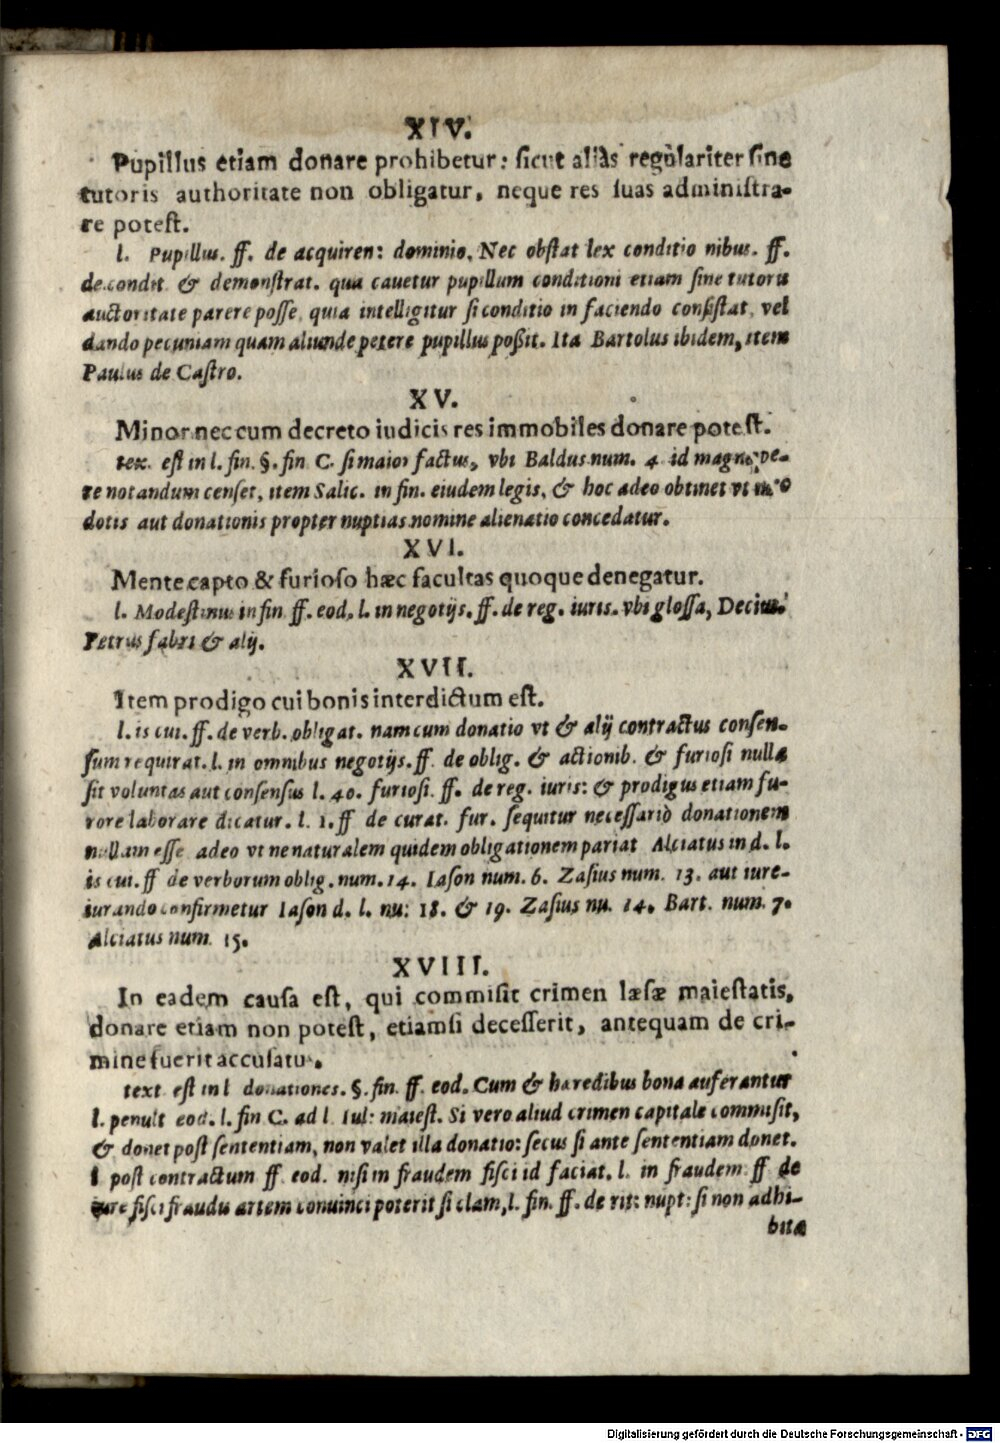 XIV.
Pupillus etiam donare prohibetur: sicut aliàs regùlariter sine
tutoris authoritate non obligatur, neque res suas administra-
re potest.
l. Pupillus. ff. de acquiren: dominio. Nec obstat lex conditio nibus. ff.
de condit. & demonstrat. qua cauetur pupillum conditioni etiam sine tutoris
auctoritate parere posse, quia intelligitur si conditio in faciendo consistat, vel
dando pecuniam quam aliunde petere pupillus poßit. Ita Bartolus ibidem, item
Paulus de Castro.
XV.
Minor nec cum decreto iudicis res immobiles donare potest.
tex. est in l. fin. §. fin. C. si maior factus, vbi Baldus num. 4. id magnope-
re notandum censet, item Salic. in fin. eiudem legis, & hoc adeo obtinet vt
dotis aut donationis propter nuptias nomine alienatio concedatur.
XVI.
Mente capto & furioso hæc facultas quoque denegatur.
l. Modestinus in fin. ff. eod. l. in negotijs. ff. de reg. iuris. vbi glossa, Decius.
Petrus fabri & alij.
XVII.
Item prodigo cui bonis interdictum est.
l. is cui. ff. de verb. obligat. nam cum donatio vt & alij contractus consen-
sum requirat. l. in omnibus negotijs. ff. de oblig. & actionib. & furiosi nulla
sit voluntas aut consensus l. 40. furiosi. ff. de reg. iuris: & prodigus etiam fu-
rore laborare dicatur. l. 1. ff de curat. fur. sequitur necessariò donationem
nullam esse adeo vt ne naturalem quidem obligationem pariat Alciatus in d. l.
is cui. ff de verborum oblig. num. 14. Iason num. 6. Zasius num. 13. aut iure-
iurando confirmetur Iason d. l. nu: 18. & 19. Zasius nu. 14. Bart. num. 7.
Alciatus num. 15.
XVIII.
In eadem causa est, qui commisit crimen læsæ maiestatis,
donare etiam non potest, etiamsi decesserit, antequam de cri-
mine fuerit accusatus.
text est in l donationes. §. fin. ff. eod. Cum & hæredibus bona auferantur
l. penult eod. l. fin C. ad l. Iul: maiest. Si vero aliud crimen capitale commisit,
& donet post sententiam, non valet illa donatio: secus si ante sententiam donet.
l post contractum ff. eod. nisi in fraudem fisci id faciat. l. in fraudem ff de
iure fisci fraudis artem conuinci poterit si clam, l. fin. ff. de rit: nupt: si non adhi-
bita
Digitalisierung gefördert durch die Deutsche Forschungsgemeinschaft - DFG